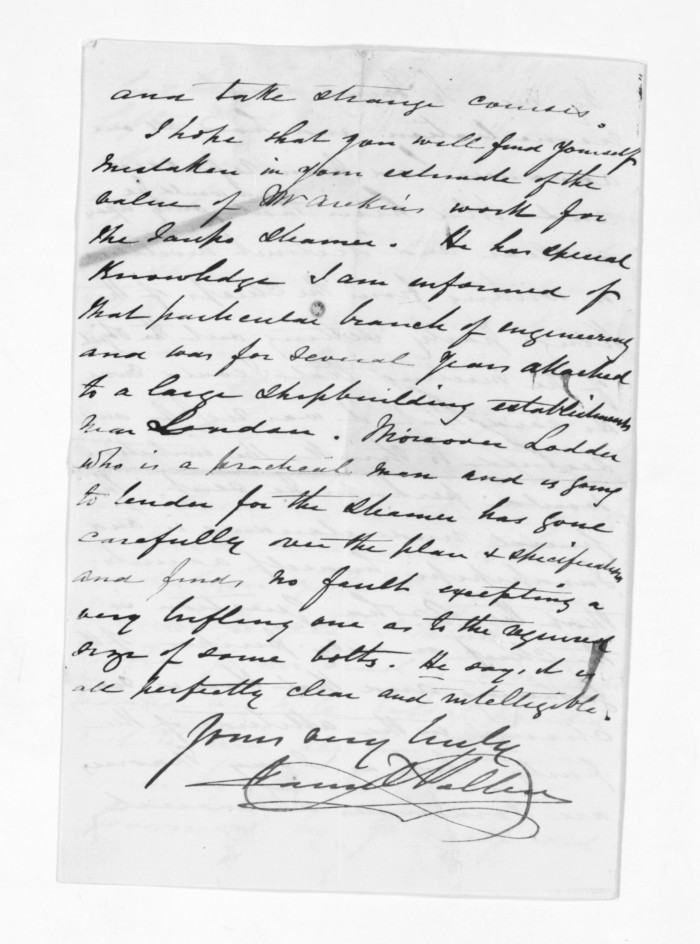 and take strange courses.
I hope that you will find yourself
mistaken in your estimate of the
value of Mr work for
the Tanks Steamer. He has special
Knowledge I am informed of
that particular branch of engineering
and was for several years attached
to a large shipbuilding establishments
near London. Moreover Lodder
who is a practical man and is going
to tender for the steamer has gone
carefully over the plan & specification
and finds no fault excepting a
very trifling one as to the required
size of some bolts. He says it is
all perfectly clear and intelligible.
Yours very truly